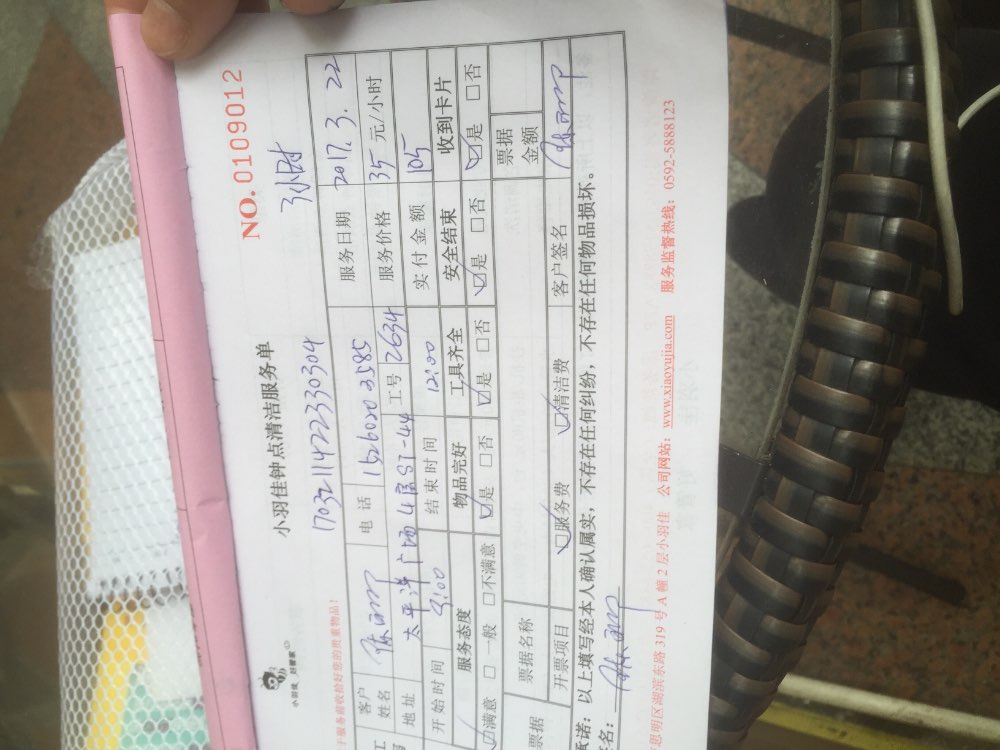 NO.0109012
小羽佳 好管家
小羽佳钟点清洁服务单
3小时
17032114223304
于服务前收拾好您的贵重物品!
客户姓名 电话 服务日期 2017.3.22
地址 太平洋广场 工号 2634 服务价格 35 元/小时
开始时间 9:00 结束时间 12:00 实付金额 105
服务态度 物品完好 工具齐全 安全结束 收到卡片
☑满意 □一般 □不满意 ☑是 □否 ☑是 □否 ☑是 □否 ☑是 □否
票据 票据名称 票据金额
开票项目 ☑服务费 ☑清洁费 客户签名
承诺:以上填写经本人确认属实,不存在任何纠纷,不存在任何物品损坏。
签名:
思明区湖滨东路 319 号 A 幢 2 层小羽佳 公司网站:www.xiaoyujia.com 服务监督热线:0592-5888123